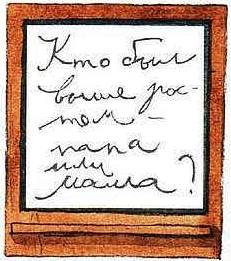 Кто был
выше рос-
том –
папа
или
мама?